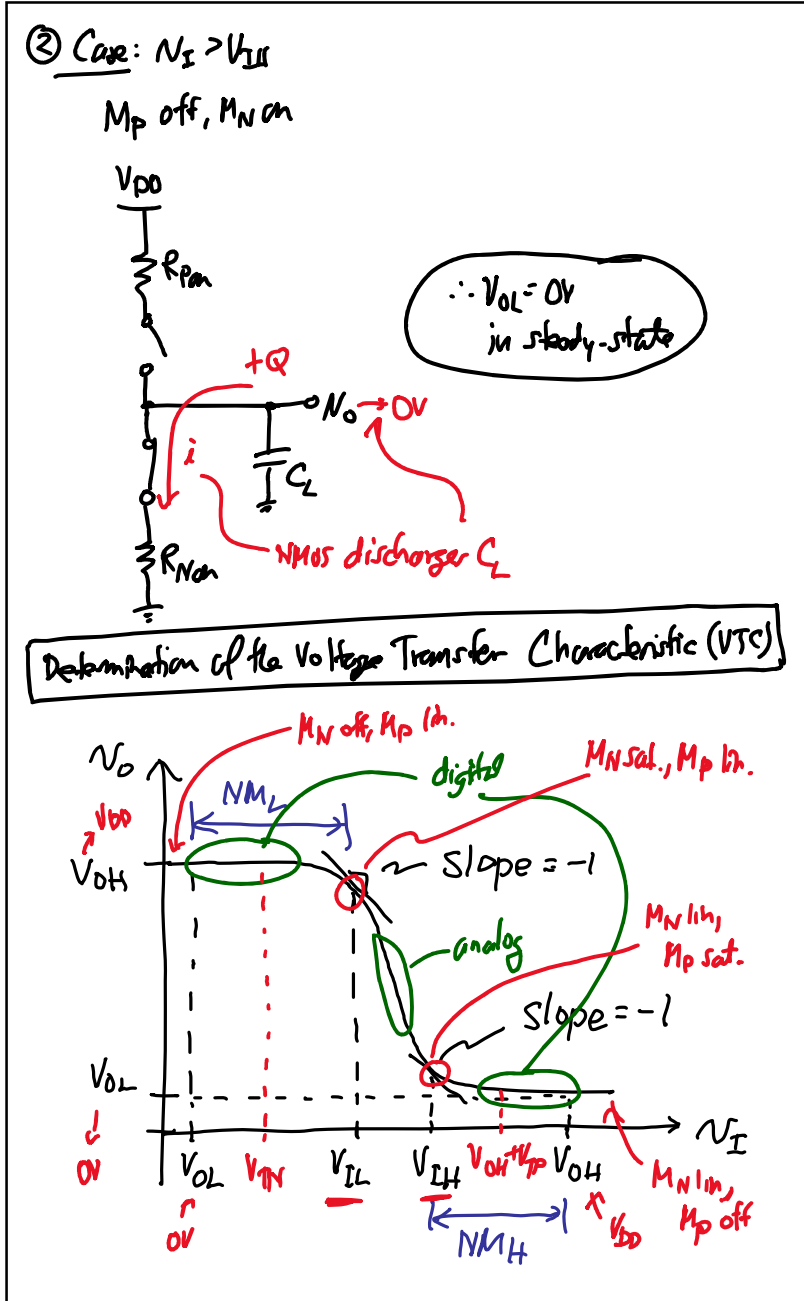 ② Case: V_I > V_IH
M_P off, M_N on
V_DD
R_Pon
∴ V_OL = 0V
in steady-state
+Q
V_O → 0V
i
C_L
NMOS discharges C_L
R_Non
Determination of the Voltage Transfer Characteristic (VTC)
M_N off, M_P lin.
V_O
digital
M_N sat., M_P lin.
NM_L
V_DD
V_OH
slope = -1
M_N lin,
M_P sat.
analog
slope = -1
V_OL
0V
V_I
V_OL
V_TN
V_IL
V_IH
V_OH+V_TP
V_OH
M_N lin,
M_P off
0V
V_DD
NM_H